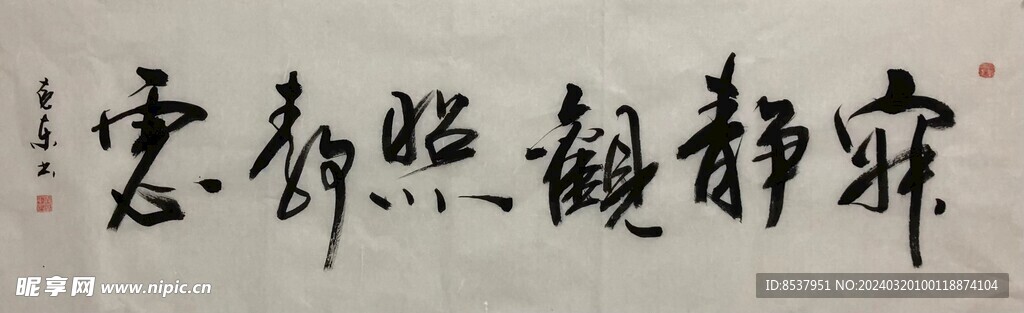 寂静觀照静慮
东书
昵享网 www.nipic.cn
ID:8537951 NO:20240320100118874104